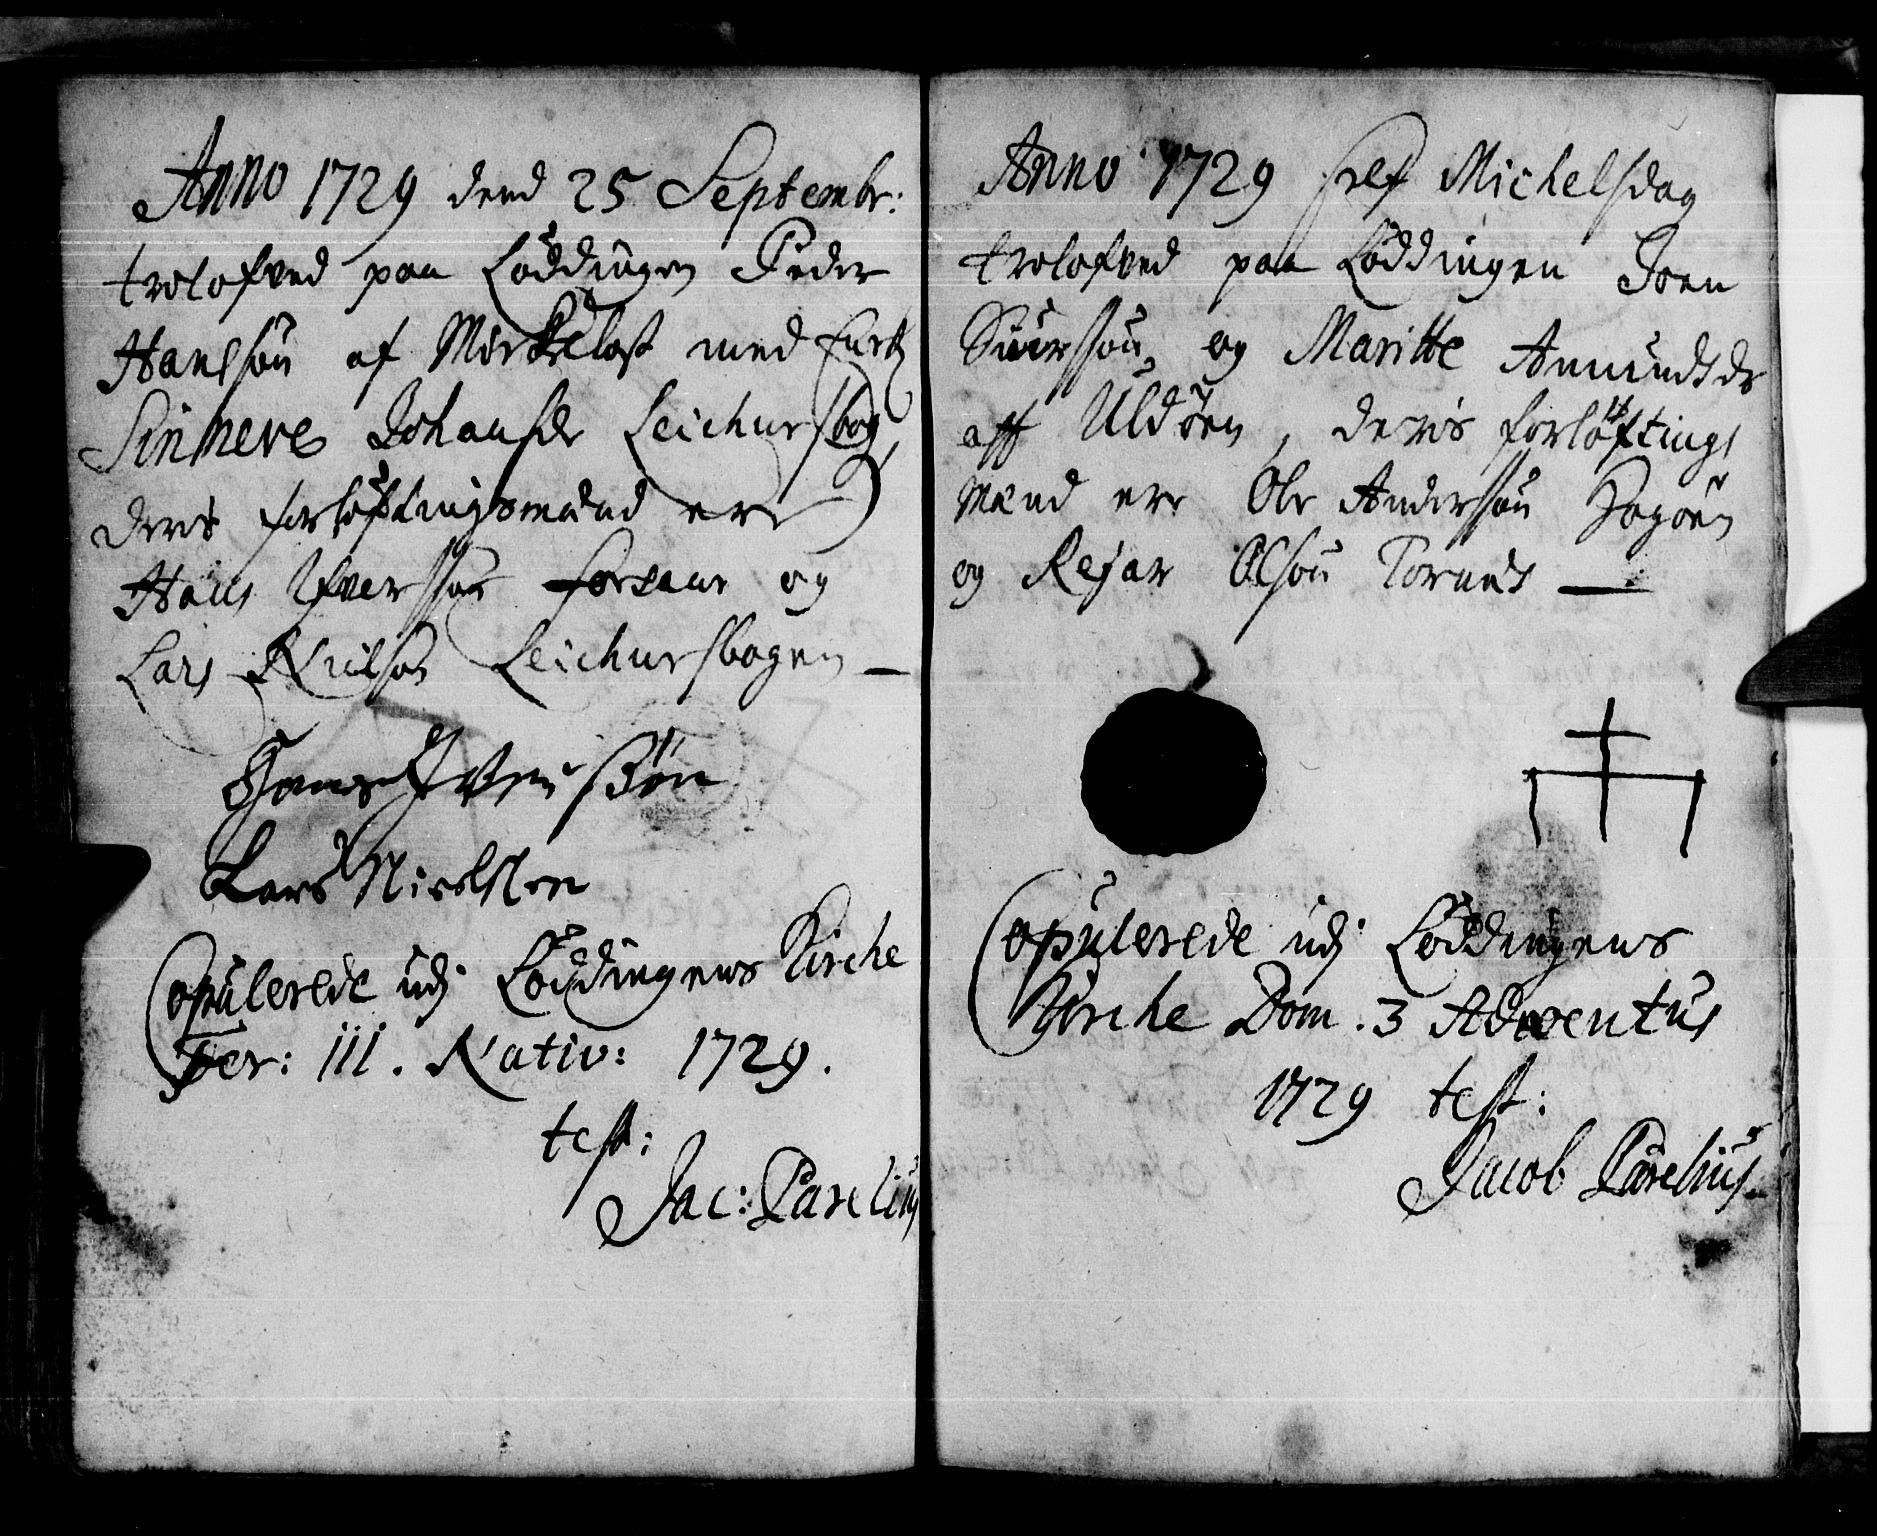 Anno 1729 dend 25 Septembr:
trolofved paa Löddingen Peder
Hansön af Mörkelost med
Sinneve Johansdr Leichursbog,
deris forlöftingsmænd ere
Hans Ifversön og
Lars Nielsøn Leichursbogen —
Hans Iversøn
Lars Nielssen
Copulerede udj Löddingens Kirche
Fer: III. Nativ: 1729.
test:
Jac: Parelius
Anno 1729 self Michelsdag
trolofved paa Löddingen Joen
Siursön og Maritte Amundsdr
aff Uldöen, deris forlöftings
mænd ere Ole Andersön
og Rejar Olsön Tornes —
Copulerede udj Löddingens
Kirche Dom. 3 Adventus
1729 test:
Jacob Parelius